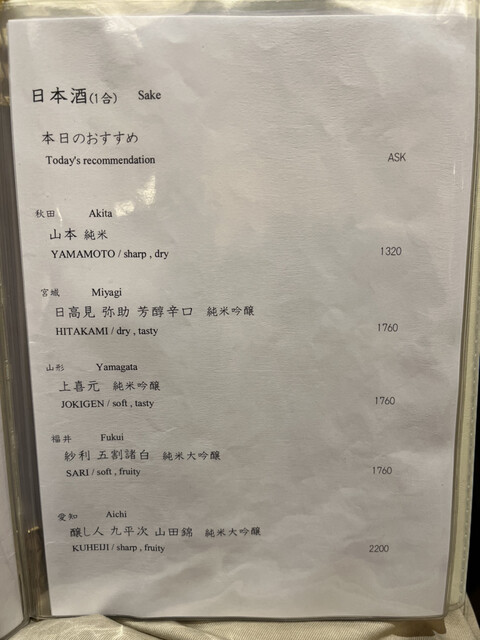 日本酒(1合) Sake
本日のおすすめ
Today's recommendation ASK
秋田 Akita
山本 純米
YAMAMOTO / sharp , dry 1320
宮城 Miyagi
日高見 弥助 芳醇辛口 純米吟醸
HITAKAMI / dry , tasty 1760
山形 Yamagata
上喜元 純米吟醸
JOKIGEN / soft , tasty 1760
福井 Fukui
紗利 五割諸白 純米大吟醸
SARI / soft , fruity 1760
愛知 Aichi
醸し人 九平次 山田錦 純米大吟醸
KUHEIJI / sharp , fruity 2200